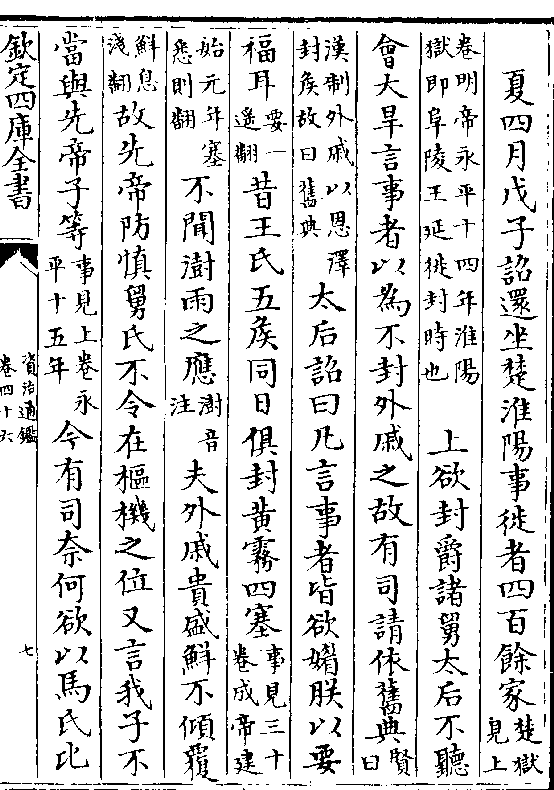 夏四月戊子詔還坐楚淮陽事徙者四百餘家楚獄見上
卷明帝永平十四年淮陽獄即阜陵王延徙封時也 上欲封爵諸舅太后不聽
會大旱言事者以為不封外戚之故有司請依舊典賢曰
漢制外戚以恩澤封侯故曰舊典 太后詔曰凡言事者皆欲媚朕以要
福耳要一遥翻昔王氏五侯同日俱封黄霧四塞事見三十卷成帝建
始元年塞悉則翻不聞澍雨之應澍音注夫外戚貴盛鮮不傾覆
鮮息淺翻故先帝防慎舅氏不令在樞機之位又言我子不
當與先帝子等事見上卷永平十五年今有司奈何欲以馬氏比
欽定四庫全書
資治通鑑
卷四十六
七